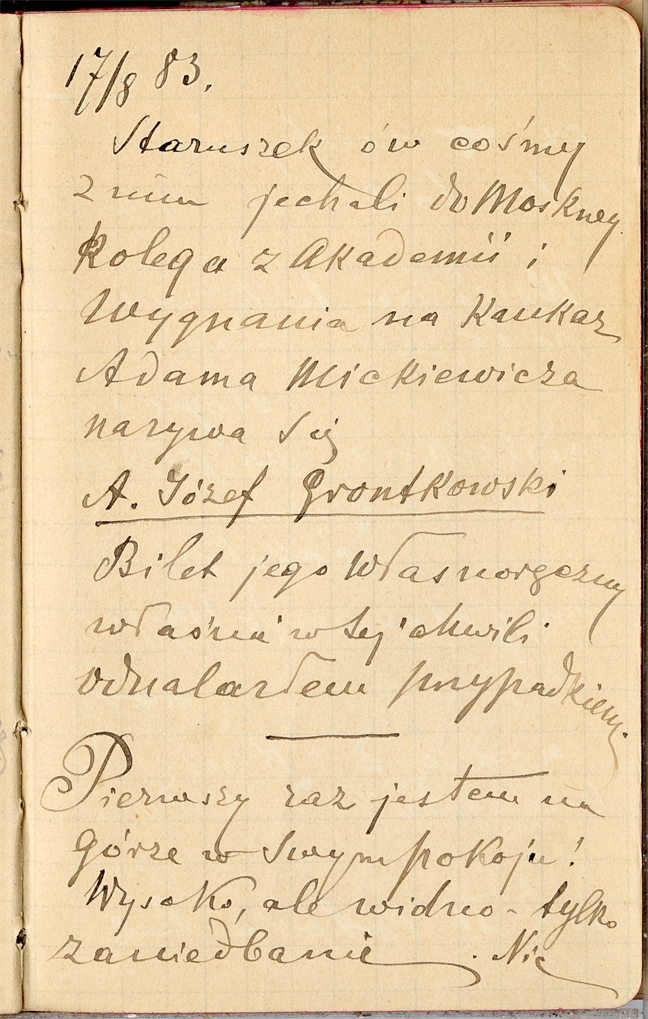 17/8 83.
Staruszek ów cośmy
z nim jechali do Moskwy
kolega z Akademii i
Wygnania na Kaukaz
Adama Mickiewicza
nazywa się
A. Józef Grontkowski
Bilet jego własnoręczny
właśnie w tej chwili
odnalazłem przypadkiem.
Pierwszy raz jestem na
górze w swym pokoju!
Wysoko, ale widno - tylko
zaniedbanie. Nic